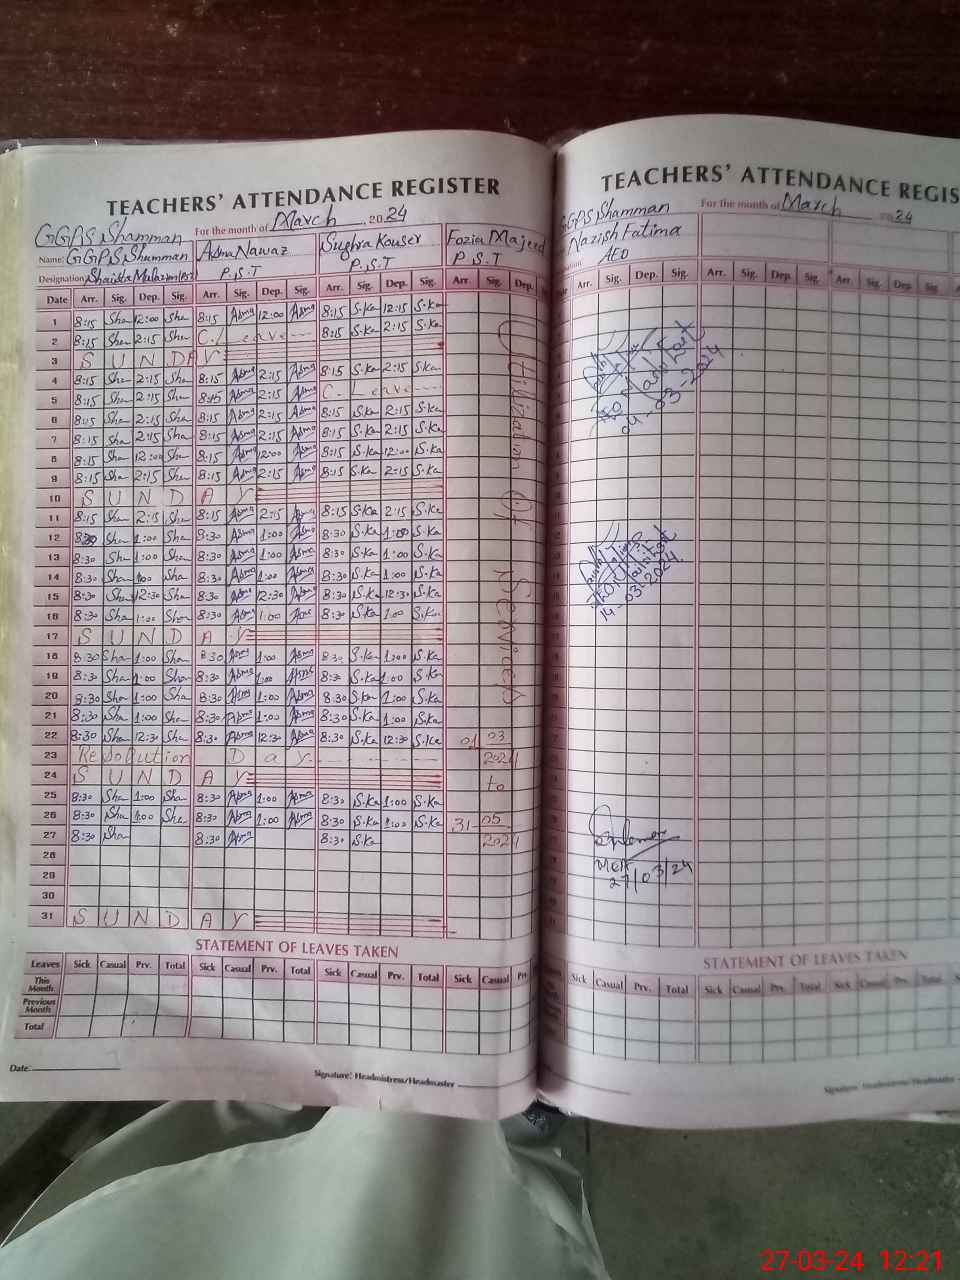 TEACHERS' ATTENDANCE REGISTER
GGPS Shamman For the month of March 2024
Name: GGPS Shamman Asma Nawaz Sughra Kouser Fozia Majeed
Designation: P.S.T P.S.T P S.T
Date Arr. Sig. Dep. Sig. Arr. Sig. Dep. Sig. Arr. Sig. Dep. Sig. Arr. Sig. Dep.
1 8:15 Sha 12:00 Sha 8:15 Asma 12:00 Asma 8:15 S.Ka 12:15 S.Ka
2 8:15 Sha 2:15 Sha C. Leave 8:15 S.Ka 2:15 S.Ka
3 S U N D A Y
4 8:15 Sha 2:15 Sha 8:15 Asma 2:15 Asma 8:15 S.Ka 2:15 S.Ka
5 8:15 Sha 2:15 Sha 8:15 Asma 2:15 Asma C. Leave
6 8:15 Sha 2:15 Sha 8:15 Asma 2:15 Asma 8:15 S.Ka 2:15 S.Ka
7 8:15 Sha 2:15 Sha 8:15 Asma 2:15 Asma 8:15 S.Ka 2:15 S.Ka
8 8:15 Sha 12:00 Sha 8:15 Asma 12:00 Asma 8:15 S.Ka 12:00 S.Ka
9 8:15 Sha 2:15 Sha 8:15 Asma 2:15 Asma 8:15 S.Ka 2:15 S.Ka
10 S U N D A Y
11 8:15 Sha 2:15 Sha 8:15 Asma 2:15 Asma 8:15 S.Ka 2:15 S.Ka
12 8:30 Sha 1:00 Sha 8:30 Asma 1:00 Asma 8:30 S.Ka 1:00 S.Ka
13 8:30 Sha 1:00 Sha 8:30 Asma 1:00 Asma 8:30 S.Ka 1:00 S.Ka
14 8:30 Sha 1:00 Sha 8:30 Asma 1:00 Asma 8:30 S.Ka 1:00 S.Ka
15 8:30 Sha 12:30 Sha 8:30 Asma 12:30 Asma 8:30 S.Ka 12:30 S.Ka
16 8:30 Sha 1:00 Sha 8:30 Asma 1:00 Asma 8:30 S.Ka 1:00 S.Ka
17 S U N D A Y
18 8:30 Sha 1:00 Sha 8:30 Asma 1:00 Asma 8:30 S.Ka 1:00 S.Ka
19 8:30 Sha 1:00 Sha 8:30 Asma 1:00 Asma 8:30 S.Ka 1:00 S.Ka
20 8:30 Sha 1:00 Sha 8:30 Asma 1:00 Asma 8:30 S.Ka 1:00 S.Ka
21 8:30 Sha 1:00 Sha 8:30 Asma 1:00 Asma 8:30 S.Ka 1:00 S.Ka
22 8:30 Sha 12:30 Sha 8:30 Asma 12:30 Asma 8:30 S.Ka 12:30 S.Ka 01 03
23 Resolution Day 2024
24 S U N D A Y to
25 8:30 Sha 1:00 Sha 8:30 Asma 1:00 Asma 8:30 S.Ka 1:00 S.Ka
26 8:30 Sha 1:00 Sha 8:30 Asma 1:00 Asma 8:30 S.Ka 1:00 S.Ka 31- 05
27 8:30 Sha 8:30 Asma 8:30 S.Ka 2024
28
29
30
31 S U N D A Y
Utilization Of Services
STATEMENT OF LEAVES TAKEN
Leaves Sick Casual Prv. Total Sick Casual Prv. Total Sick Casual Prv. Total Sick Casual Prv.
This Month
Previous Month
Total
Date:
Signature: Headmistress/Headmaster
TEACHERS' ATTENDANCE REGIS
GGPS Shamman For the month of March 2024
Nazish Fatima
AEO
Arr. Sig. Dep. Sig. Arr. Sig. Dep. Sig. Arr. Sig. Dep. Sig
04-03-2024
14-03-2024
MEA
27/03/24
STATEMENT OF LEAVES TAKEN
Sick Casual Prv. Total Sick Casual Prv. Total Sick Casual Prv. Total
Signature: Headmistress/Headmaster
27-03-24 12:21